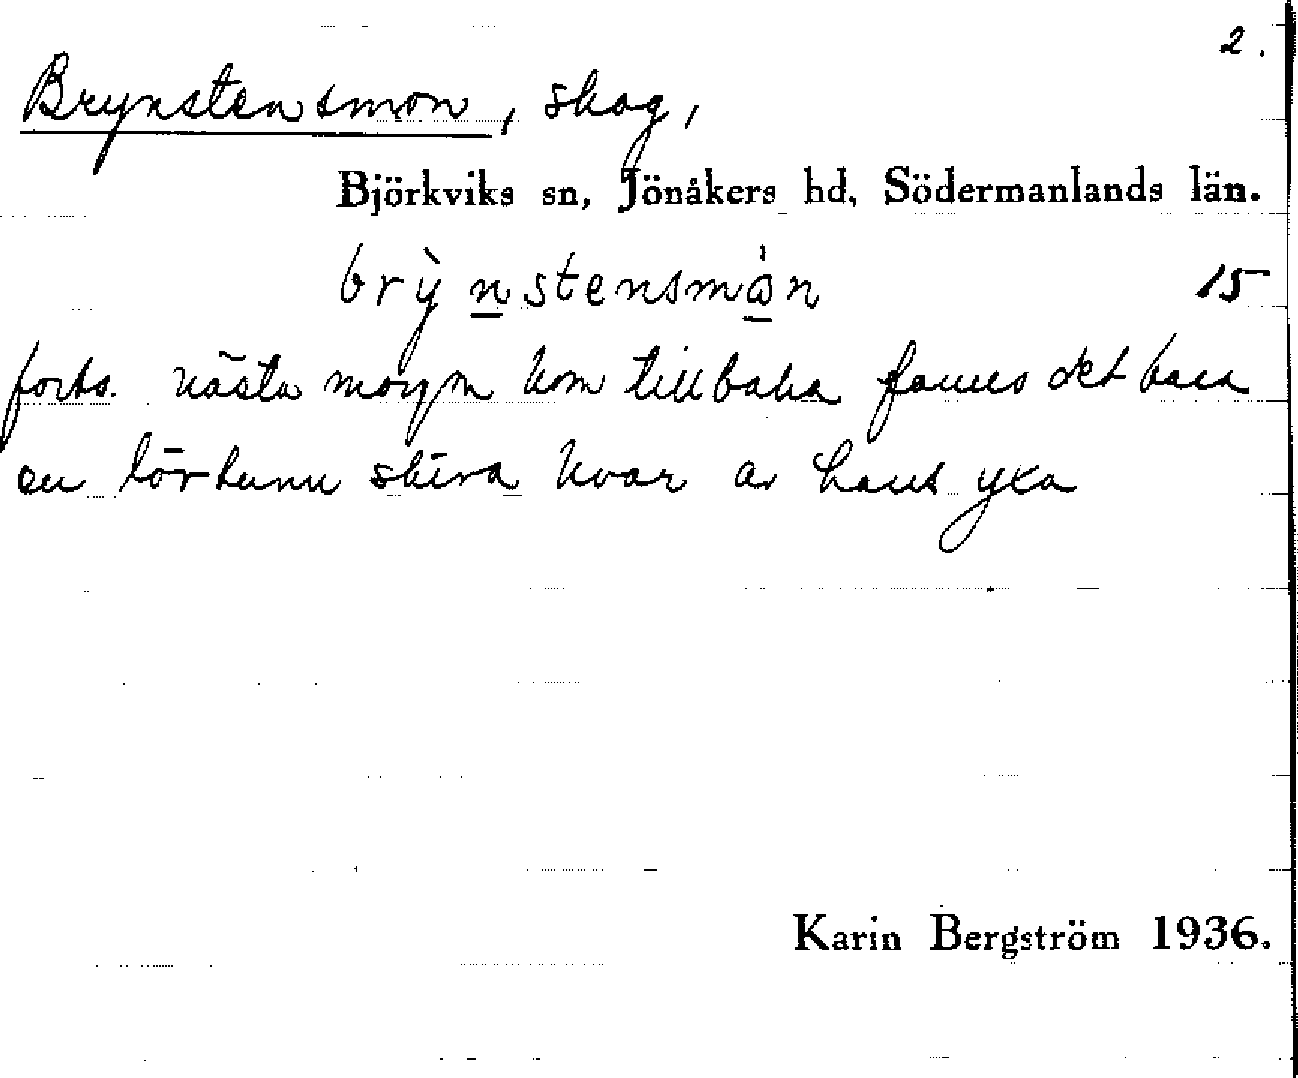 2.
Brynstensmon, skog,
Björkviks sn, Jönåkers hd, Södermanlands län.
brỳnstensmån 15
forts. nästa morgon kom tillbaka fanns det bara
en lövtunn skiva kvar av hans yxa
Karin Bergström 1936.